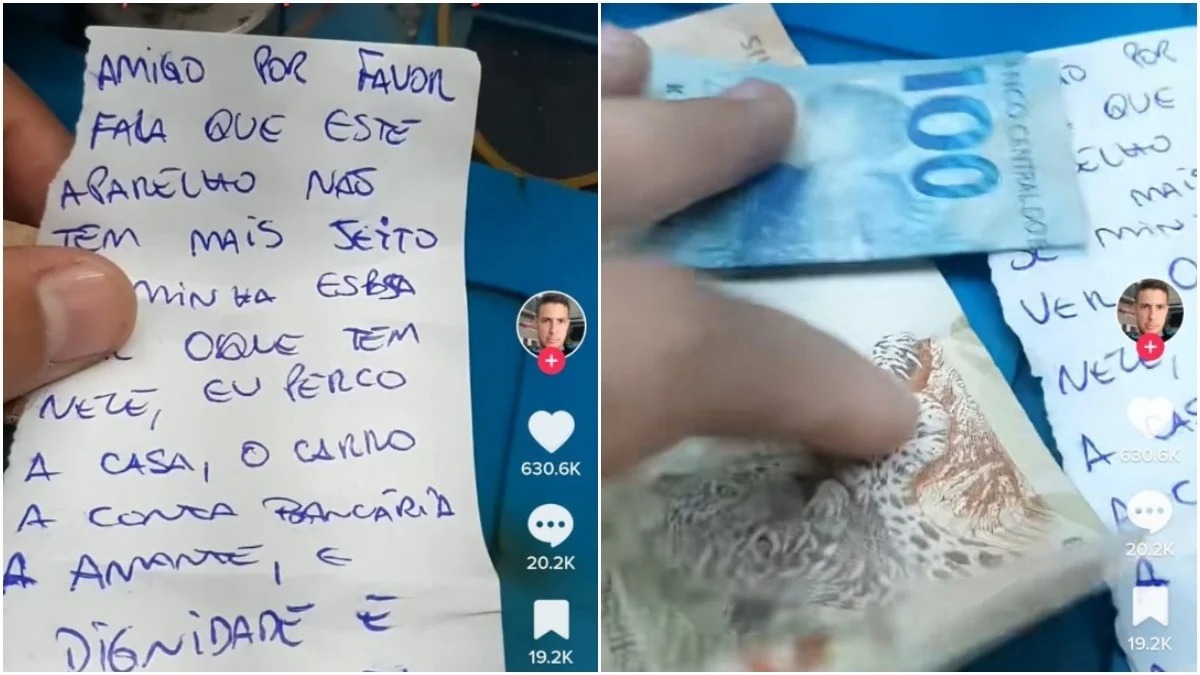 AMIGO POR FAVOR
FALA QUE ESTE
APARELHO NÃO
TEM MAIS JEITO
MINHA
OQUE TEM
NELE, EU PERCO
A CASA, O CARRO
A CONTA BANCÁRIA
A AMANTE, E
DIGNIDADE E
630.6K
20.2K
19.2K
100
ANCO CENTRAL DO B
K
O POR
QUE
ELHO
MAIS
SE MIN
VER O
NELE,
A CAS
A C
A
630.6K
20.2K
19.2K